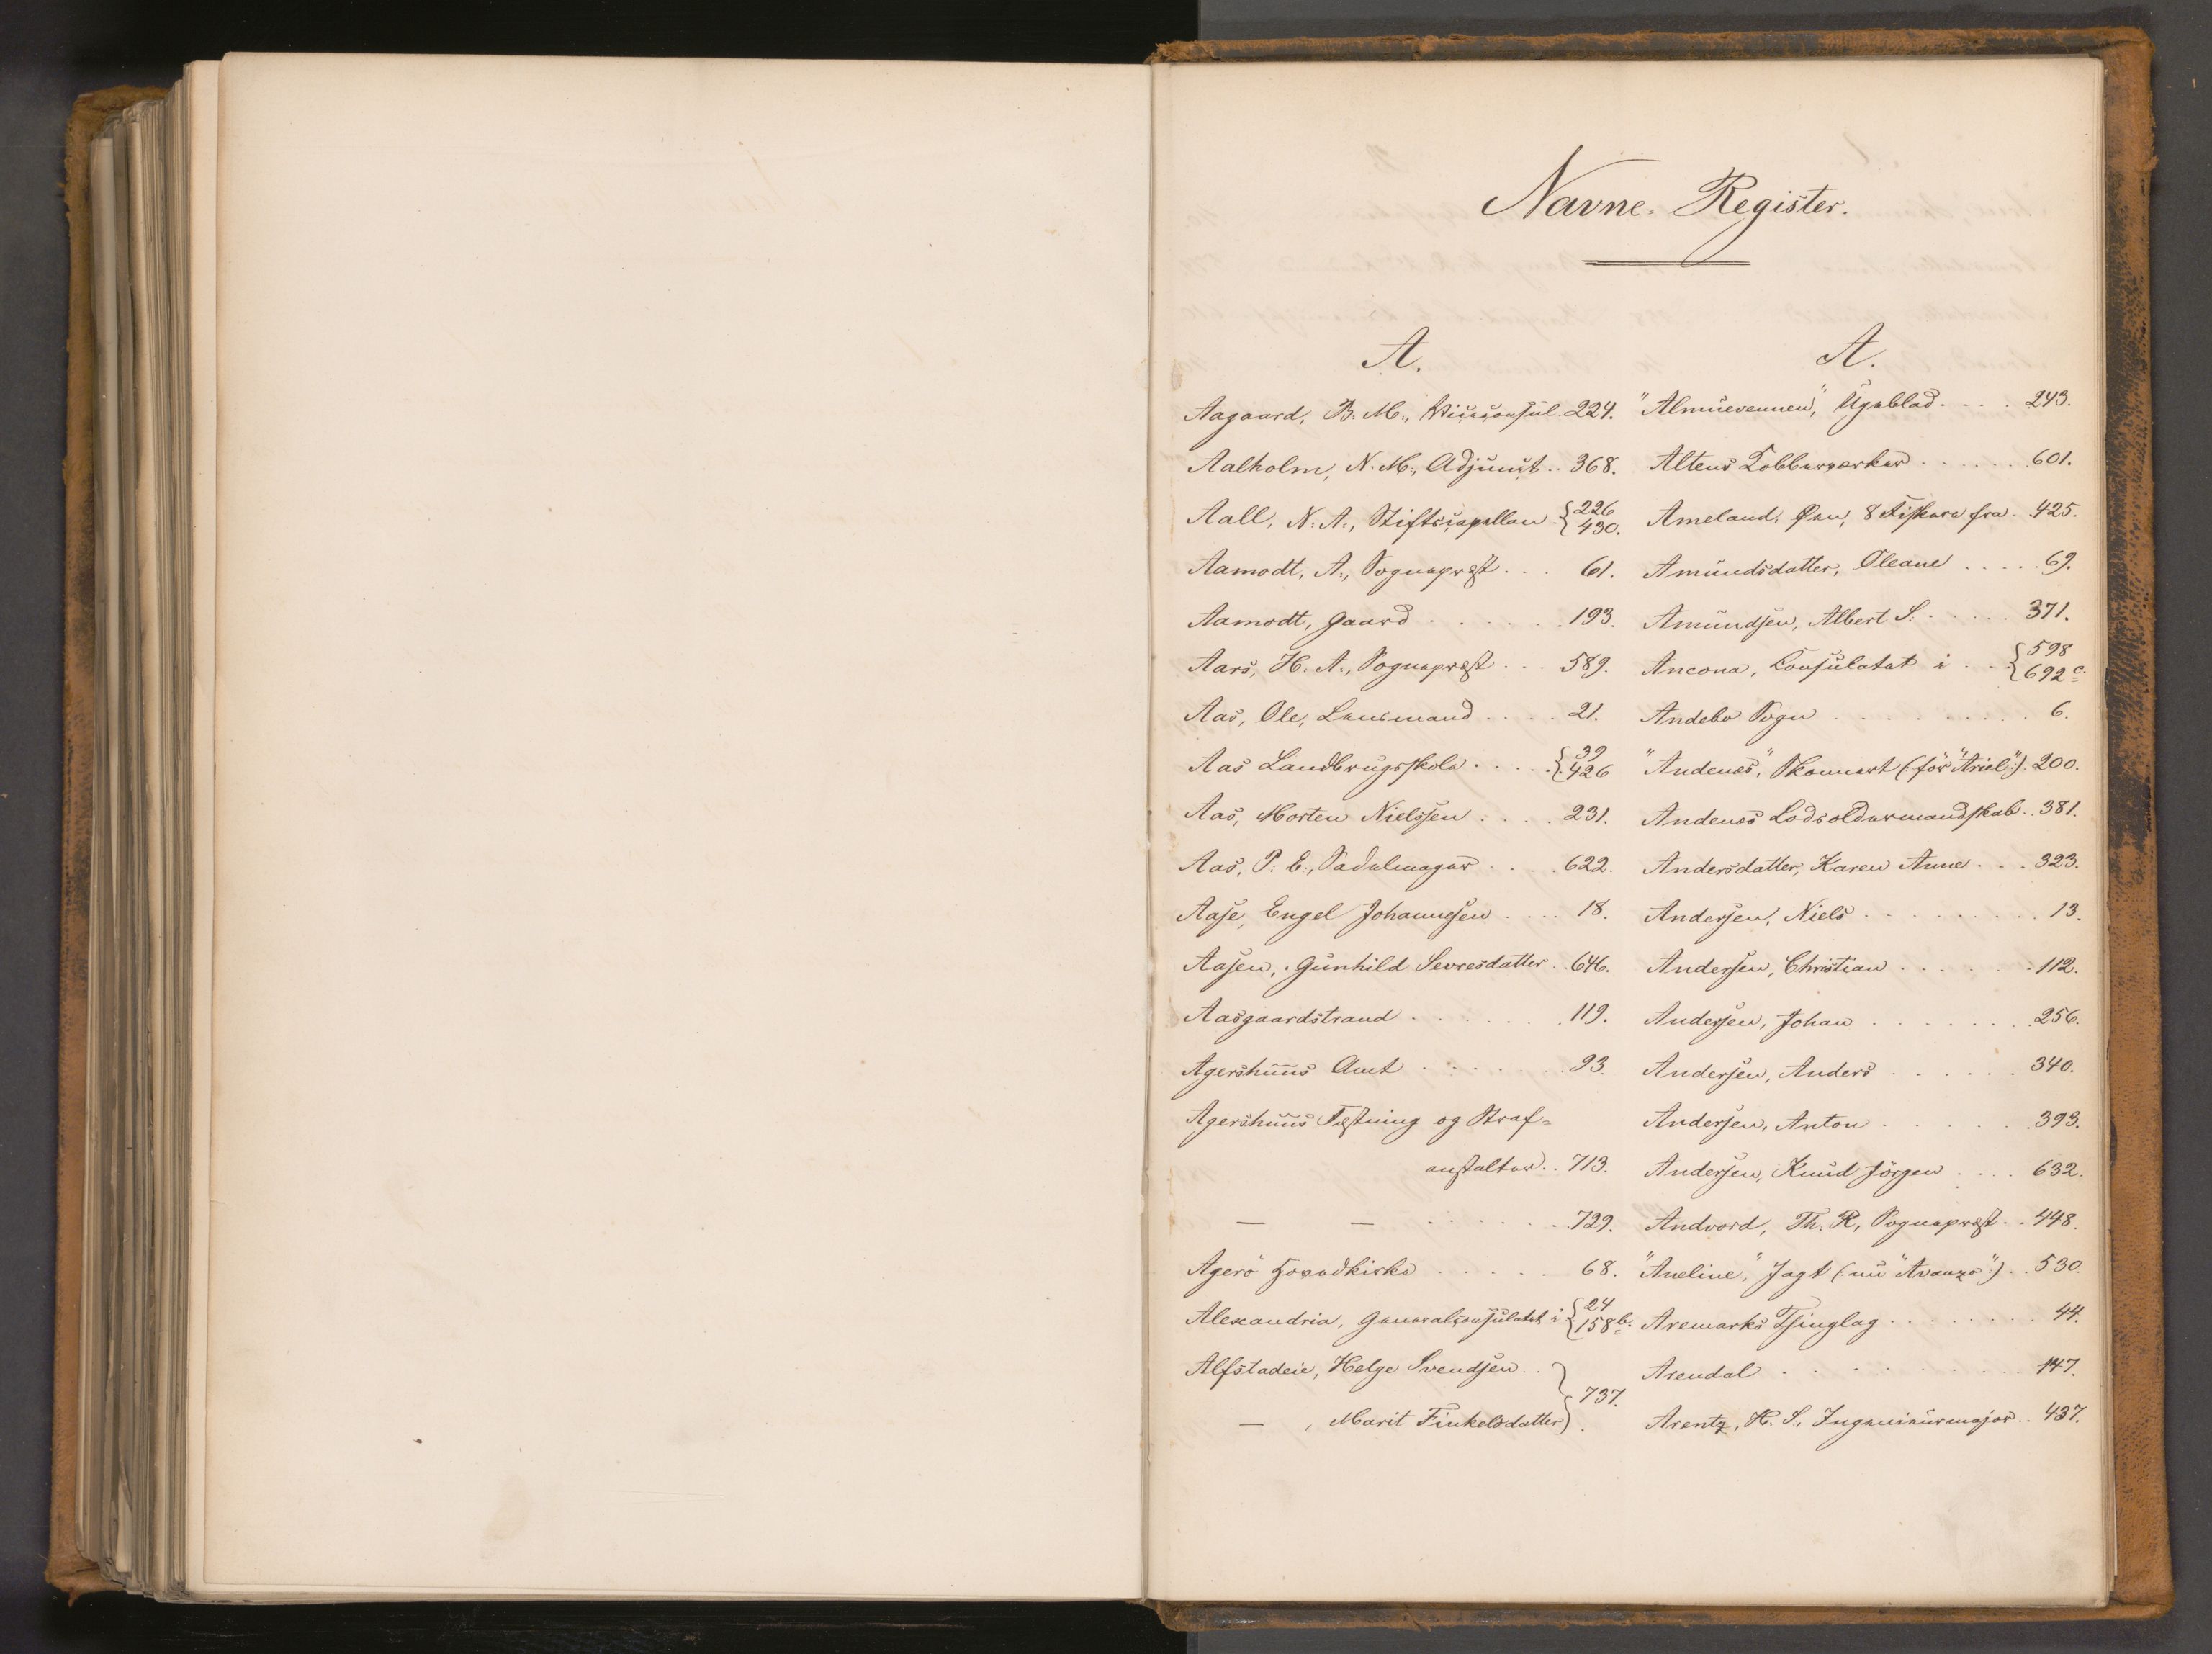 Navne-Register.
A.
Aagaard, B. M., Viceconsul. 224.
Aalholm, N. M., Adjunct .. 368.
Aall, N. A., Stiftscapellan {226 430.
Aamodt, A., Sognepræst ... 61.
Aamodt, Gaard ...... 193.
Aars, H. A., Sognepræst ... 589.
Aas, Ole, Lensmand .... 21.
Aas Landbrugsskole ..... {39 426
Aas, Morten Nielssen .... 231.
Aas, P. E., Sadelmager .... 622.
Aase, Engel Johannesen .... 18.
Aasen, Gunhild Sevresdatter .. 646.
Aasgaardstrand ...... 119.
Agershuus Amt ....... 93.
Agershuus Fæstning og Straf-
anstalter .. 713.
— — ...... 729.
Agerö Hovedkirke ..... 68.
Alexandria, Generalconsulatet i {24 158 b.
Alfstadeie, Helge Svendsen .. }
— , Marit Finkelsdatter } 737.
A.
"Almuevennen", Ugeblad .... 243.
Altens Kobberværker ...... 601.
Ameland, Øen, 8 Fiskere fra .. 425.
Amundsdatter, Oleane ..... 69.
Amundsen, Albert S. ..... 371.
Ancona, Consulatet i ... {598 692 c.
Andebo Sogn ......... 6.
"Andenæs", Skonnert (: för "Ariel":) . 200.
Andenæs Lodsoldermandskab .. 381.
Andersdatter, Karen Anne ... 323.
Andersen, Niels ......... 13.
Andersen, Christian ...... 112.
Andersen, Johan ....... 256.
Andersen, Anders ...... 340.
Andersen, Anton ...... 393.
Andersen, Knud Jörgen .... 632.
Andvord, Th. R, Sognepræst .. 448.
"Aneline", Jagt (: nu "Avance":) .. 530.
Aremarks Thinglag ........ 44.
Arendal ......... 147.
Arentz, H. S., Ingenieurmajor .. 437.